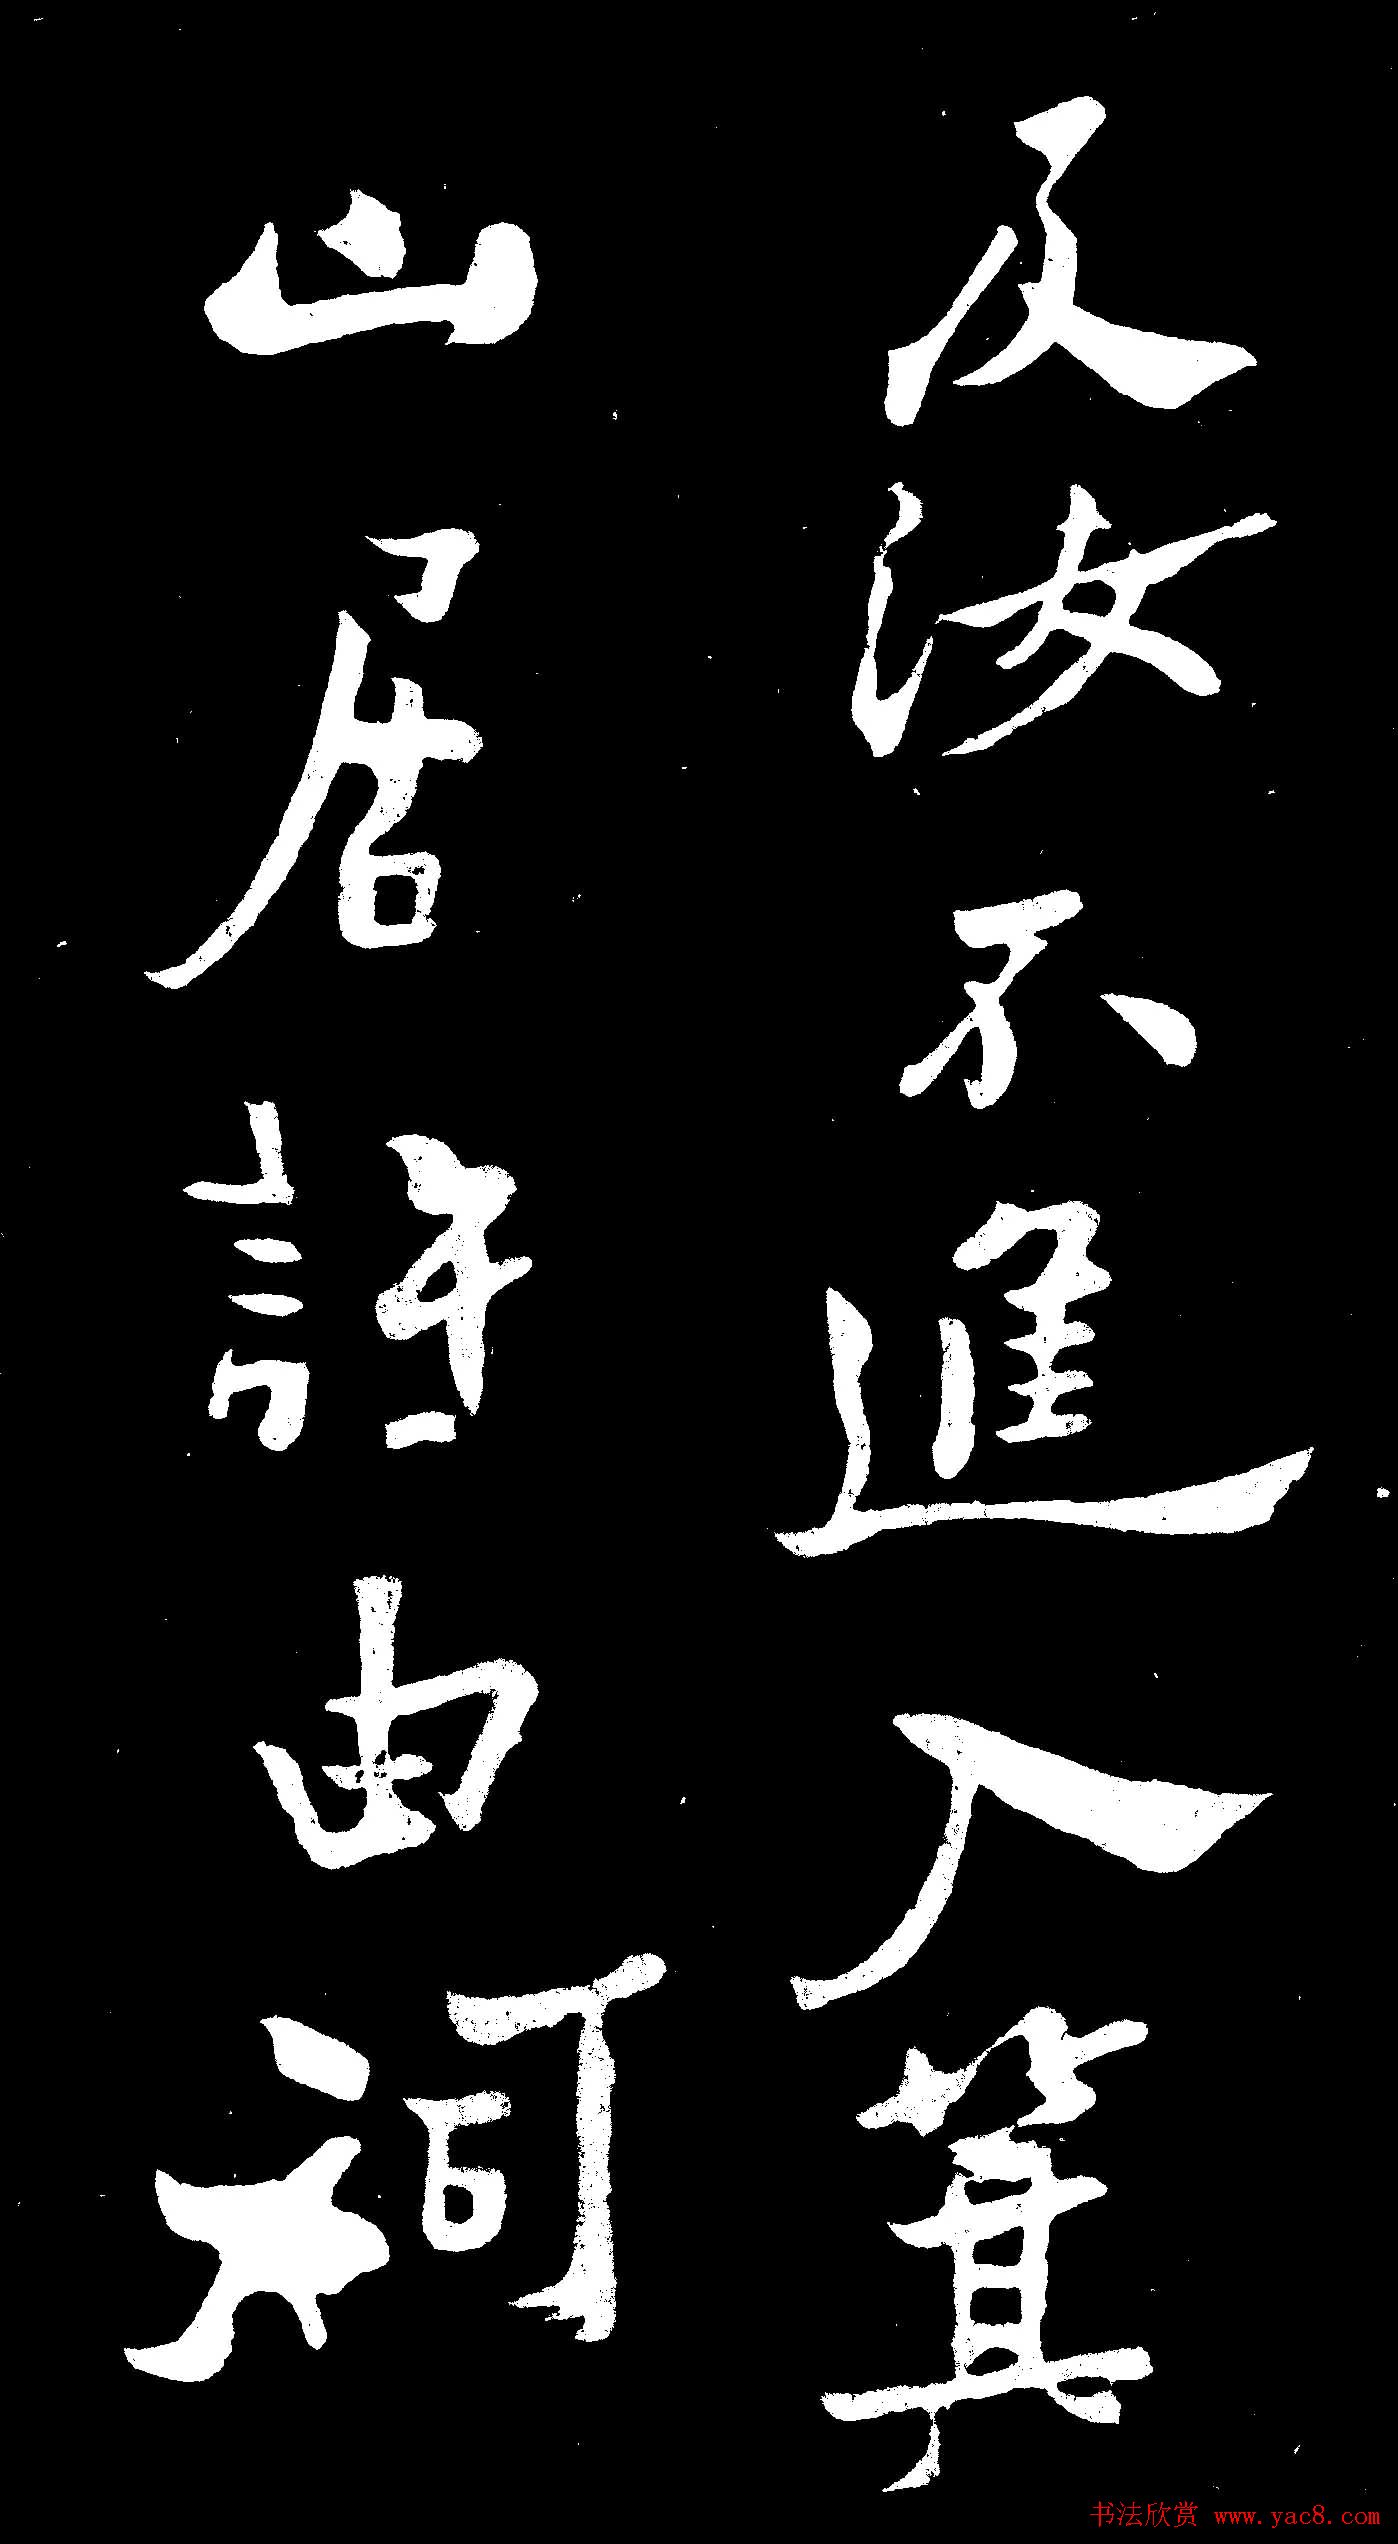 及汝不進入箕
山居許由祠
书法欣赏 www.yac8.com